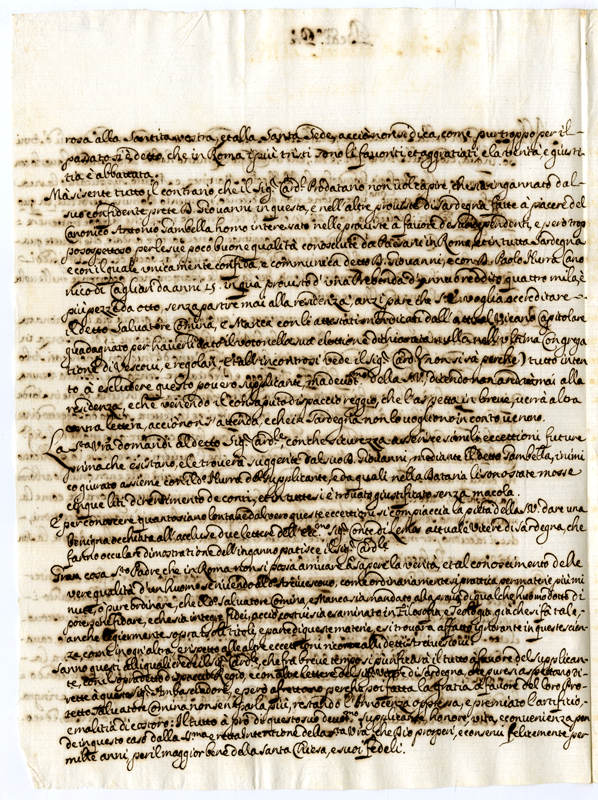 rosa alla Santità vostra, et alla Santa Sede, acciò non si dica, come purtroppo per il
passato si è detto, che in Roma i più tristi sono li favoriti et aggratiati e la verità e giusti
tia è abbattuta.
Mà si sente tutto il contrario che il Sigr Card. Prodatario non vuol capire, che sia ingannato dal
suo confidente prete D. Giovanni in questa, e nell'altre proviste di Sardegna fatte à piacere del
Canonico Antonio Sambella homo interessato nelle proviste à favore de suoi dependenti, e però trop
po sospettoso per le sue poco buone qualità conosciute da Paesani in Roma, et in tutta Sardegna
e con il quale unicamente confida, e communica detto D. Giovanni, e con D. Paolo Hurru Cano
nico di Cagliari da anni 15 in quà provisto d'una Prebenda d'annuo reddito quattro mila, e
più pezze da otto, senza partire mai alla residenza, anzi pare che S. E. voglia accreditare
il detto Salvatore e Manca con li attestati mendicati dall' attual Vicario Capitolare
guadagnato per haverli dato il voto nella sua elettione dichiarata nulla nell'ultima Congrega
tione di Vescovi, e regolari. Et all'incontro si vede il Sigr Card. (non si sa perche) tutto inten
to à escludere questo povero supplicante, ma devotmo della S. V. dicendo non anderà mai alla
residenza, e che venendo il consaputo dispaccio reggio, che l'aspetta in breve, verrà altra
contra lettera, acciò non s'attenda, e che in Sardegna non lo vogliono in conto veruno.
La Stà Vra domandi al detto Sigr Card. con che sicurezza asserisce simili eccettioni future
prima che esistano, e le troverà suggerite dal suo D. Giovanni, mediante il detto Sambella, inimi
co giurato assieme con il do Hurru del supplicante, e da quali nella Dataria li sono state mosse
cinque liti di riempimento de corpi, et in tutte si è trovato giustificato senza macola.
E per conoscere quanto siano lontane dal vero queste eccettioni si compiaccia la pietà della S. V. dare una
benigna occhiata all'accluse due lettere dell' Eccmo Sigr Conte di Lemos attuale Vicere di Sardegna, che
fanno occulare dimostratione dell'inganno patisce il Sigr Card.le
Gran cosa Sto Padre che in Roma non si possa arrivare à sapere la verità, et al conoscimento delle
vere qualità d'un huomo se non lo come ordinariamente si prattica per materie più mi
nute, o pure ordinare, che il do Salvatore e Manca sia mandato alla presenza di qualche huomo dotto di
potersi fidare, e che sia integre fidei, acciò costui sia esaminato in Filosofia, e Teologia, già che si fà tale,
anche leggiermente sopra tsolli titoli, e parte di queste materie, e si trovarà affatto ignorante in queste scien
ze, come in ogn'altra, e rispetto alle altre eccettioni ricorre alli detti istrutti soui
Sanno questi alli quali crede il Sigr Card.le, che trà breve tempo si purificarà il tutto à favore del supplican
te, con il sopradetto dispaccio Regio, e con altre lettere del Sigr Vicere di Sardegna, che pure si aspettano di
rette à questo Sigr Ambasciadore, e però affrettano perche poi fatta la gratia à favore del loro Pro
tetto Salvatore non s'enparla più, restando l'innocenza oppressa, e premiato l'artificio,
e malitia di costoro: Il tutto à prò di questo suo devotmo supplicante, honore, vita, e convenienza pen
de in questo caso dalla somma e retta intentione della Stà Vra, che Dio prosperi, e conservi felicemente per
mille anni, per il maggior bene della Santa Chiesa, e suoi fedeli.